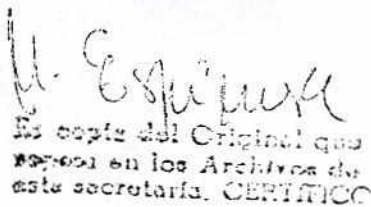 M. Espinosa
Es copia del Original que
reposa en los Archivos de
esta secretaría. CERTIFICO